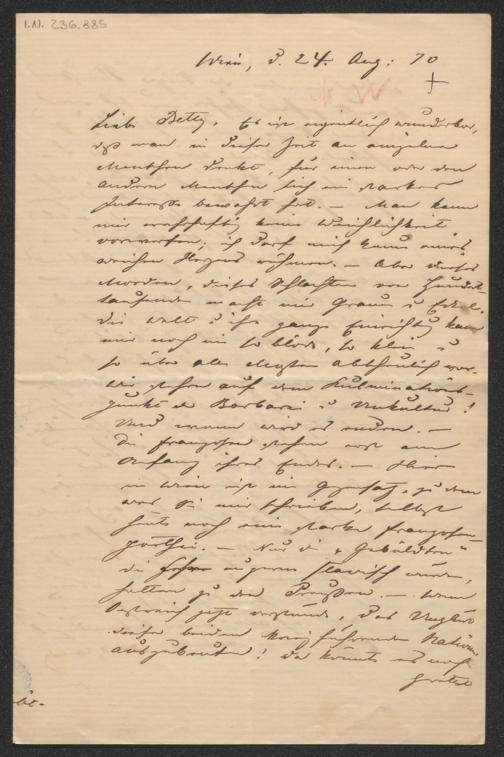 I.N. 236.885
Wien, d. 24. Aug: 70
Liebe Betty, Es ist eigentlich wunderbar,
daß man in dieser Zeit an einzelne
Menschen denkt, für einen oder den
andern Menschen sich ein starkes
Interesse bewahrt hat. — Man kann
mir wahrhaftig keine Weichlichkeit
vorwerfen; ich darf mich kaum eines
weichen Herzens rühmen. — Aber dieses
Morden, dieses Schlachten von Hundert-
tausende macht mir Graun u Ekel.
Die Welt u ihre ganze Einrichtung kam
mir noch nie so blöde, so klein u
so über alle Maßen abscheulich vor.
Wir stehen auf dem Kulminations-
punkt der Barbarei u Unkultur!
Und wann wird es enden. —
Die Franzosen stehen erst am
Anfang ihres Endes. — Hier
in Wien ist im Gegensatz, zu dem
was Sie mir schreiben, selbst
heute noch eine starke Franzosen-
parthei. — Nur die „Gebildeten"
die slavisch
halten zu den Preußen. — Wenn
Östreich jetzt verstünde, das Unglück
dieser beiden kriegführenden Nationen
auszubeuten! Da könnte es noch